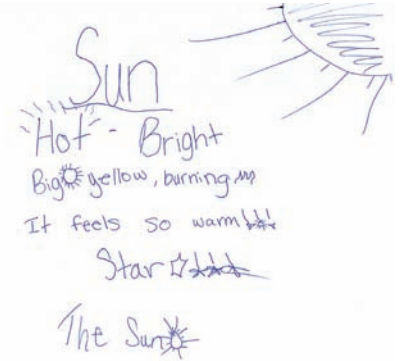 Sun
Hot - Bright
Big yellow, burning
It feels so warm
Star
The Sun